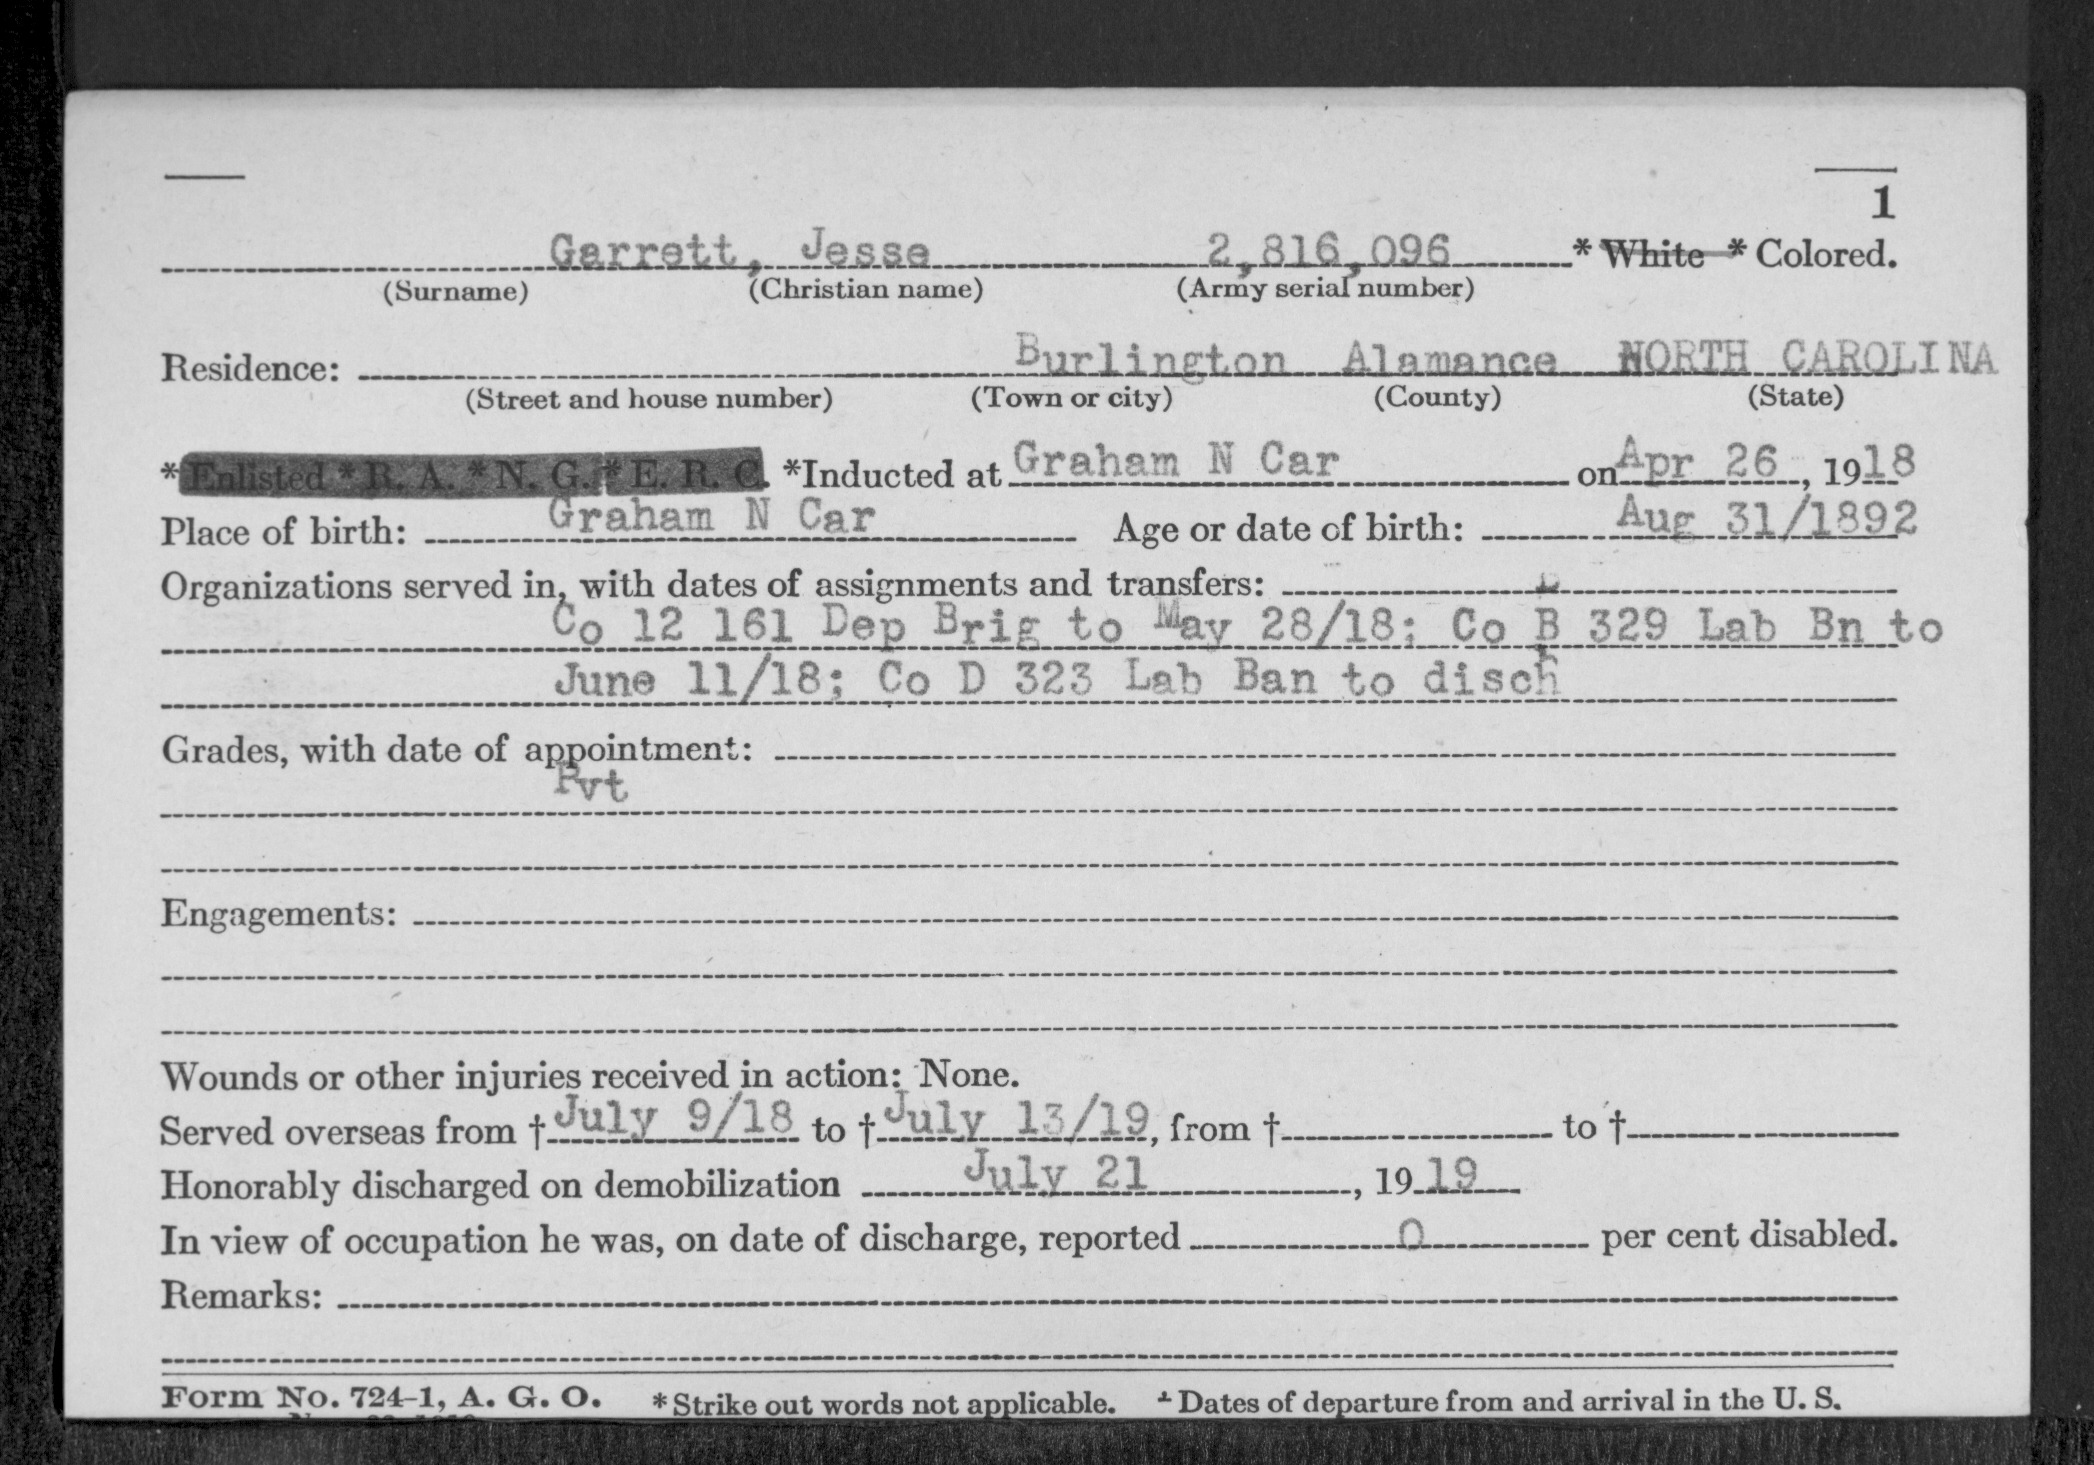 1
Garrett, Jesse 2,816,096 * White * Colored.
(Surname) (Christian name) (Army serial number)
Residence: Burlington Alamance NORTH CAROLINA
(Street and house number) (Town or city) (County) (State)
*Enlisted * R. A. * N. G. * E. R. C. *Inducted at Graham N Car on Apr 26, 1918
Place of birth: Graham N Car Age or date of birth: Aug 31/1892
Organizations served in, with dates of assignments and transfers:
Co 12 161 Dep Brig to May 28/18; Co B 329 Lab Bn to
June 11/18; Co D 323 Lab Ban to disch
Grades, with date of appointment:
Pvt
Engagements:
Wounds or other injuries received in action: None.
Served overseas from † July 9/18 to † July 13/19, from † to †
Honorably discharged on demobilization July 21, 1919
In view of occupation he was, on date of discharge, reported 0 per cent disabled.
Remarks:
Form No. 724-1, A. G. O. * Strike out words not applicable. † Dates of departure from and arrival in the U. S.